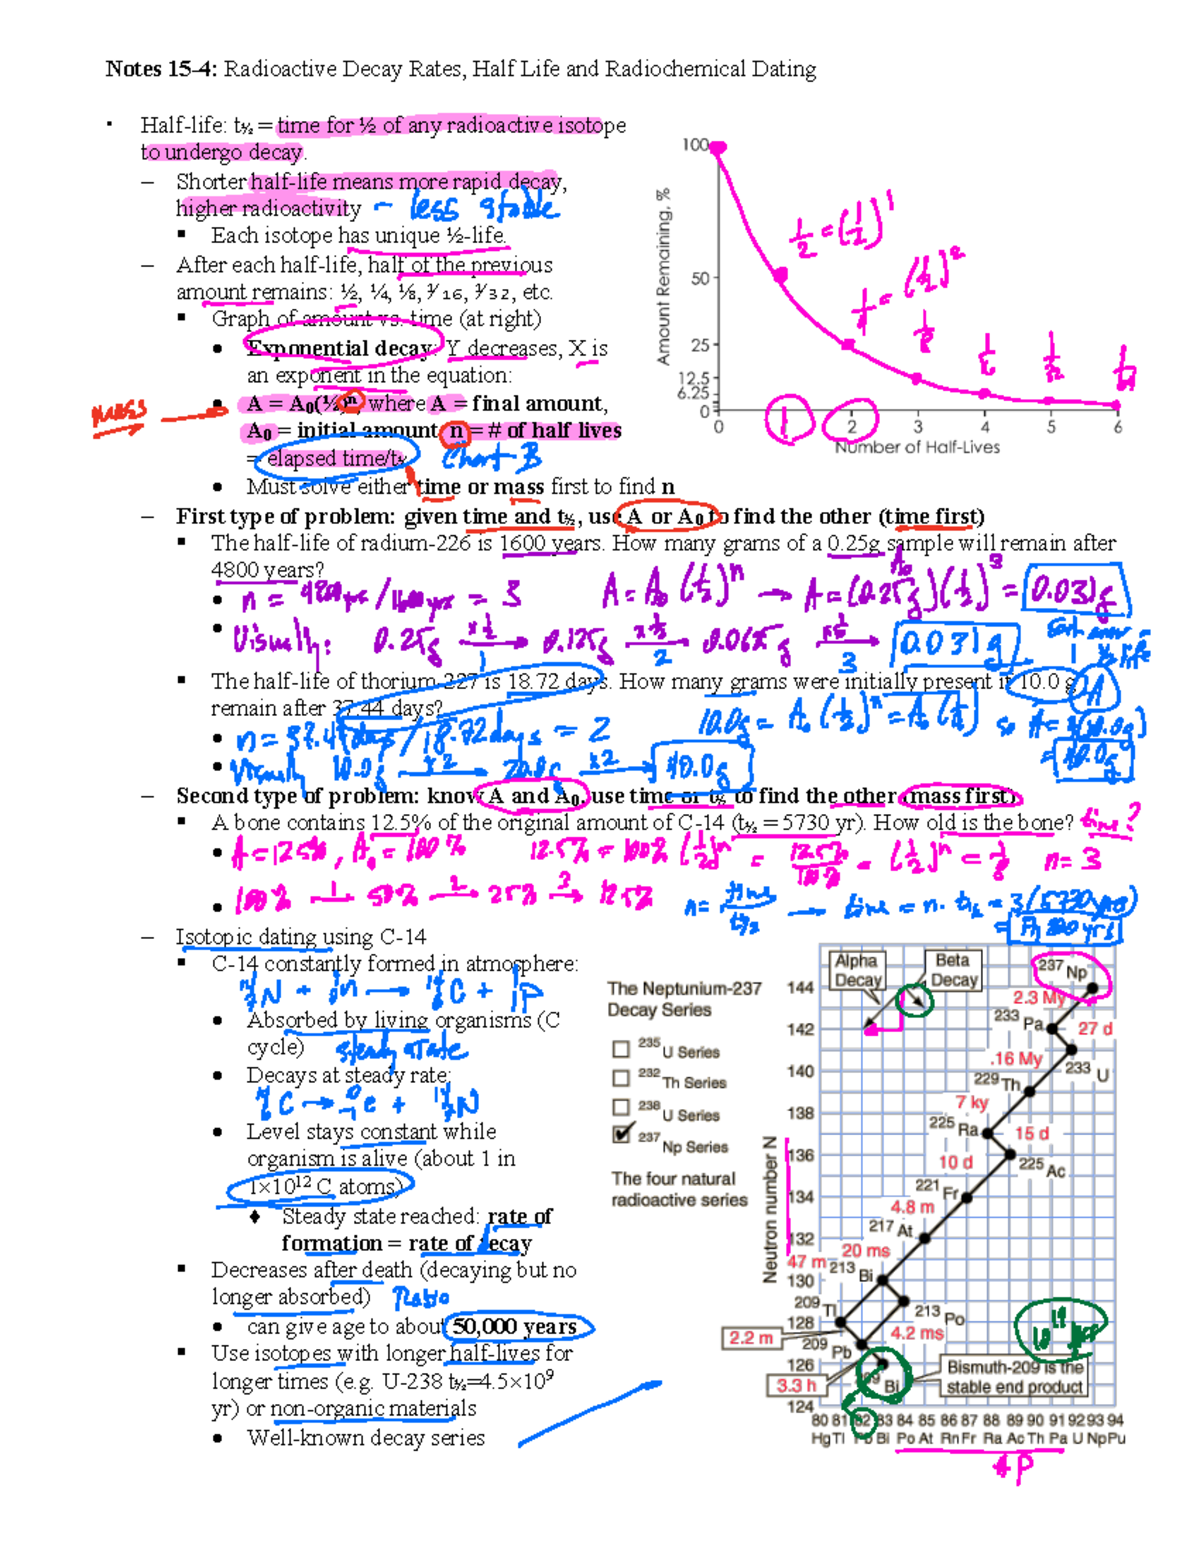 Notes 15-4: Radioactive Decay Rates, Half Life and Radiochemical Dating
▪ Half-life: t½ = time for ½ of any radioactive isotope
to undergo decay.
– Shorter half-life means more rapid decay,
higher radioactivity – less stable
▪ Each isotope has unique ½-life.
– After each half-life, half of the previous
amount remains: ½, ¼, ⅛, 1/16, 1/32, etc.
▪ Graph of amount vs. time (at right)
• Exponential decay: Y decreases, X is
an exponent in the equation:
mass
• A = A₀(½)ⁿ where A = final amount,
A₀ = initial amount, n = # of half lives
= elapsed time/t½ Chart B
• Must solve either time or mass first to find n
Amount Remaining, %
100
50
25
12.5
6.25
0
0 1 2 3 4 5 6
Number of Half-Lives
½ = (½)¹
¼ = (½)²
⅛
1/16
1/32
1/64
– First type of problem: given time and t½, use A or A₀ to find the other (time first)
▪ The half-life of radium-226 is 1600 years. How many grams of a 0.25g sample will remain after
4800 years?
• n = 4800yrs/1600yrs = 3 A = A₀(½)ⁿ → A = (0.25g)(½)³ = 0.031g
A₀
• Visually: 0.25g x½ → 0.125g x½ → 0.0625g x½ → 0.031g
1 2 3
▪ The half-life of thorium-227 is 18.72 days. How many grams were initially present if 10.0 g
remain after 37.44 days?
A
• n = 37.44days/18.72days = 2 10.0g = A₀(½)ⁿ = A₀(¼) so A = 4(10.0g)
= 40.0g
• Visually 10.0g x2 → 20.0g x2 → 40.0g
– Second type of problem: know A and A₀, use time or t½ to find the other (mass first)
▪ A bone contains 12.5% of the original amount of C-14 (t½ = 5730 yr). How old is the bone? time?
• A = 12.5%, A₀ = 100% 12.5% = 100%(½)ⁿ = 12.5%/100% = (½)ⁿ = ⅛ n = 3
• 100% 1→ 50% 2→ 25% 3→ 12.5% n = time/t½ → time = n · t½ = 3(5730yrs)
– Isotopic dating using C-14
▪ C-14 constantly formed in atmosphere:
¹⁴₇N + ¹₀n → ¹⁴₆C + ¹₁p
• Absorbed by living organisms (C
cycle) steady state
• Decays at steady rate:
¹⁴₆C → ⁰₋₁e + ¹⁴₇N
• Level stays constant while
organism is alive (about 1 in
1×10¹² C atoms)
♦ Steady state reached: rate of
formation = rate of decay
▪ Decreases after death (decaying but no
longer absorbed) Ratio
• can give age to about 50,000 years
▪ Use isotopes with longer half-lives for
longer times (e.g. U-238 t½=4.5×10⁹
yr) or non-organic materials
• Well-known decay series
The Neptunium-237
Decay Series
☐ ²³⁵U Series
☐ ²³²Th Series
☐ ²³⁸U Series
☑ ²³⁷Np Series
The four natural
radioactive series
Alpha
Decay
Beta
Decay
Neutron number N
144
142
140
138
136
134
132
130
128
126
124
²³⁷Np
2.3 My
²³³Pa
27 d
.16 My
²³³U
²²⁹Th
7 ky
²²⁵Ra
15 d
10 d
²²⁵Ac
²²¹Fr
4.8 m
²¹⁷At
20 ms
47 m
²¹³Bi
²⁰⁹Tl
²¹³Po
2.2 m
4.2 ms
²⁰⁹Pb
3.3 h
²⁰⁹Bi
Bismuth-209 is the
stable end product
80 81 82 83 84 85 86 87 88 89 90 91 92 93 94
Hg Tl Pb Bi Po At Rn Fr Ra Ac Th Pa U Np Pu
# p